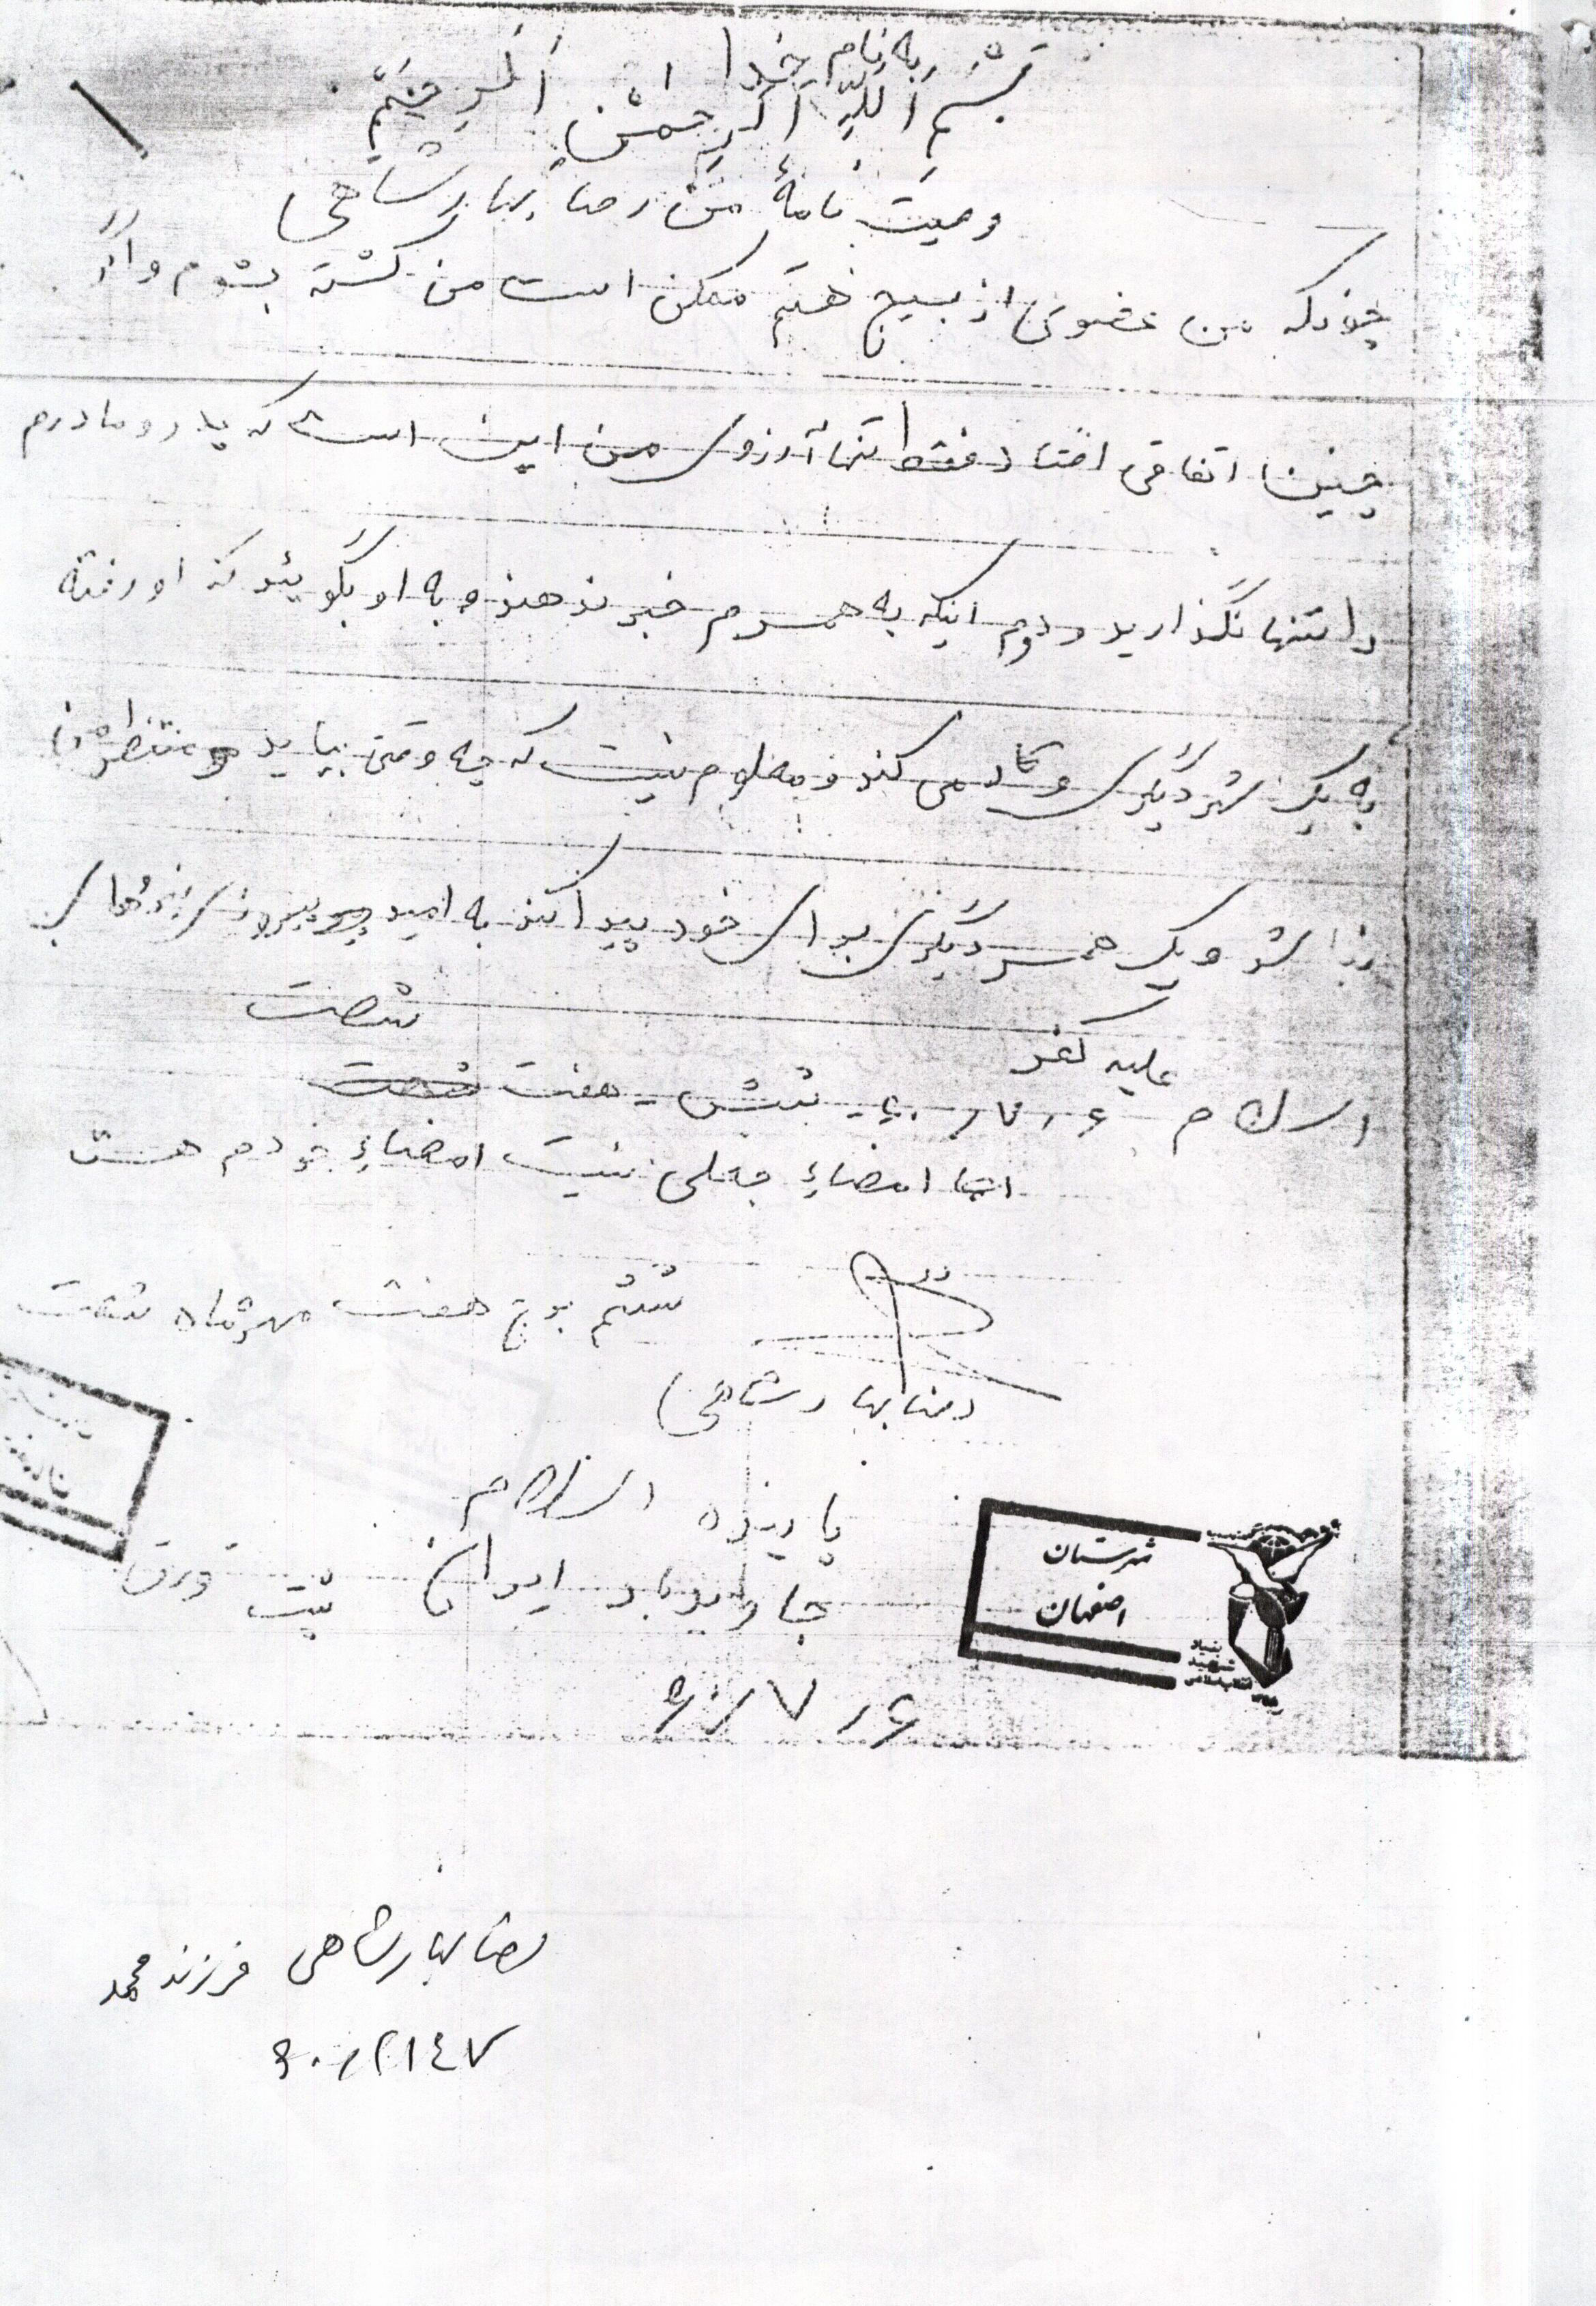 به نام خدا
بسم الله الرحمن الرحیم
وصیت نامهٔ من رضا بهارشاهی
چونکه من عضوی از بسیج هستم ممکن است من کشته بشوم و اگر
چنین اتفاقی افتاد فقط تنها آرزوی من این است که پدر و مادرم
را تنها نگذارید و دوم اینکه به همسرم خبر ندهند و به او بگوئید که او رفته
به یک شهر دیگری و کار می کند و معلوم نیست که چه وقتی بیاید و منتظر من
نباشد و یک همسر دیگری برای خود پیدا کند به امید پیروزی رزمندگان
شصت
علیه کفر
اسلام ۶ ر ۷ ر ۶۰ - شش - هفت شصت
امضاء جعلی نیست امضاء خودم هست
ششم برج هفت مهرماه شصت
رضا بهارشاهی
پاینده اسلام
جاوید باد ایران پشت ورق
۶ ر ۷ ر ۶۰
شهرستان
اصفهان
بنیاد
شهید
انقلاب اسلامی
رضا بهارشاهی فرزند محمد
۶۰۰۲۱۴۷